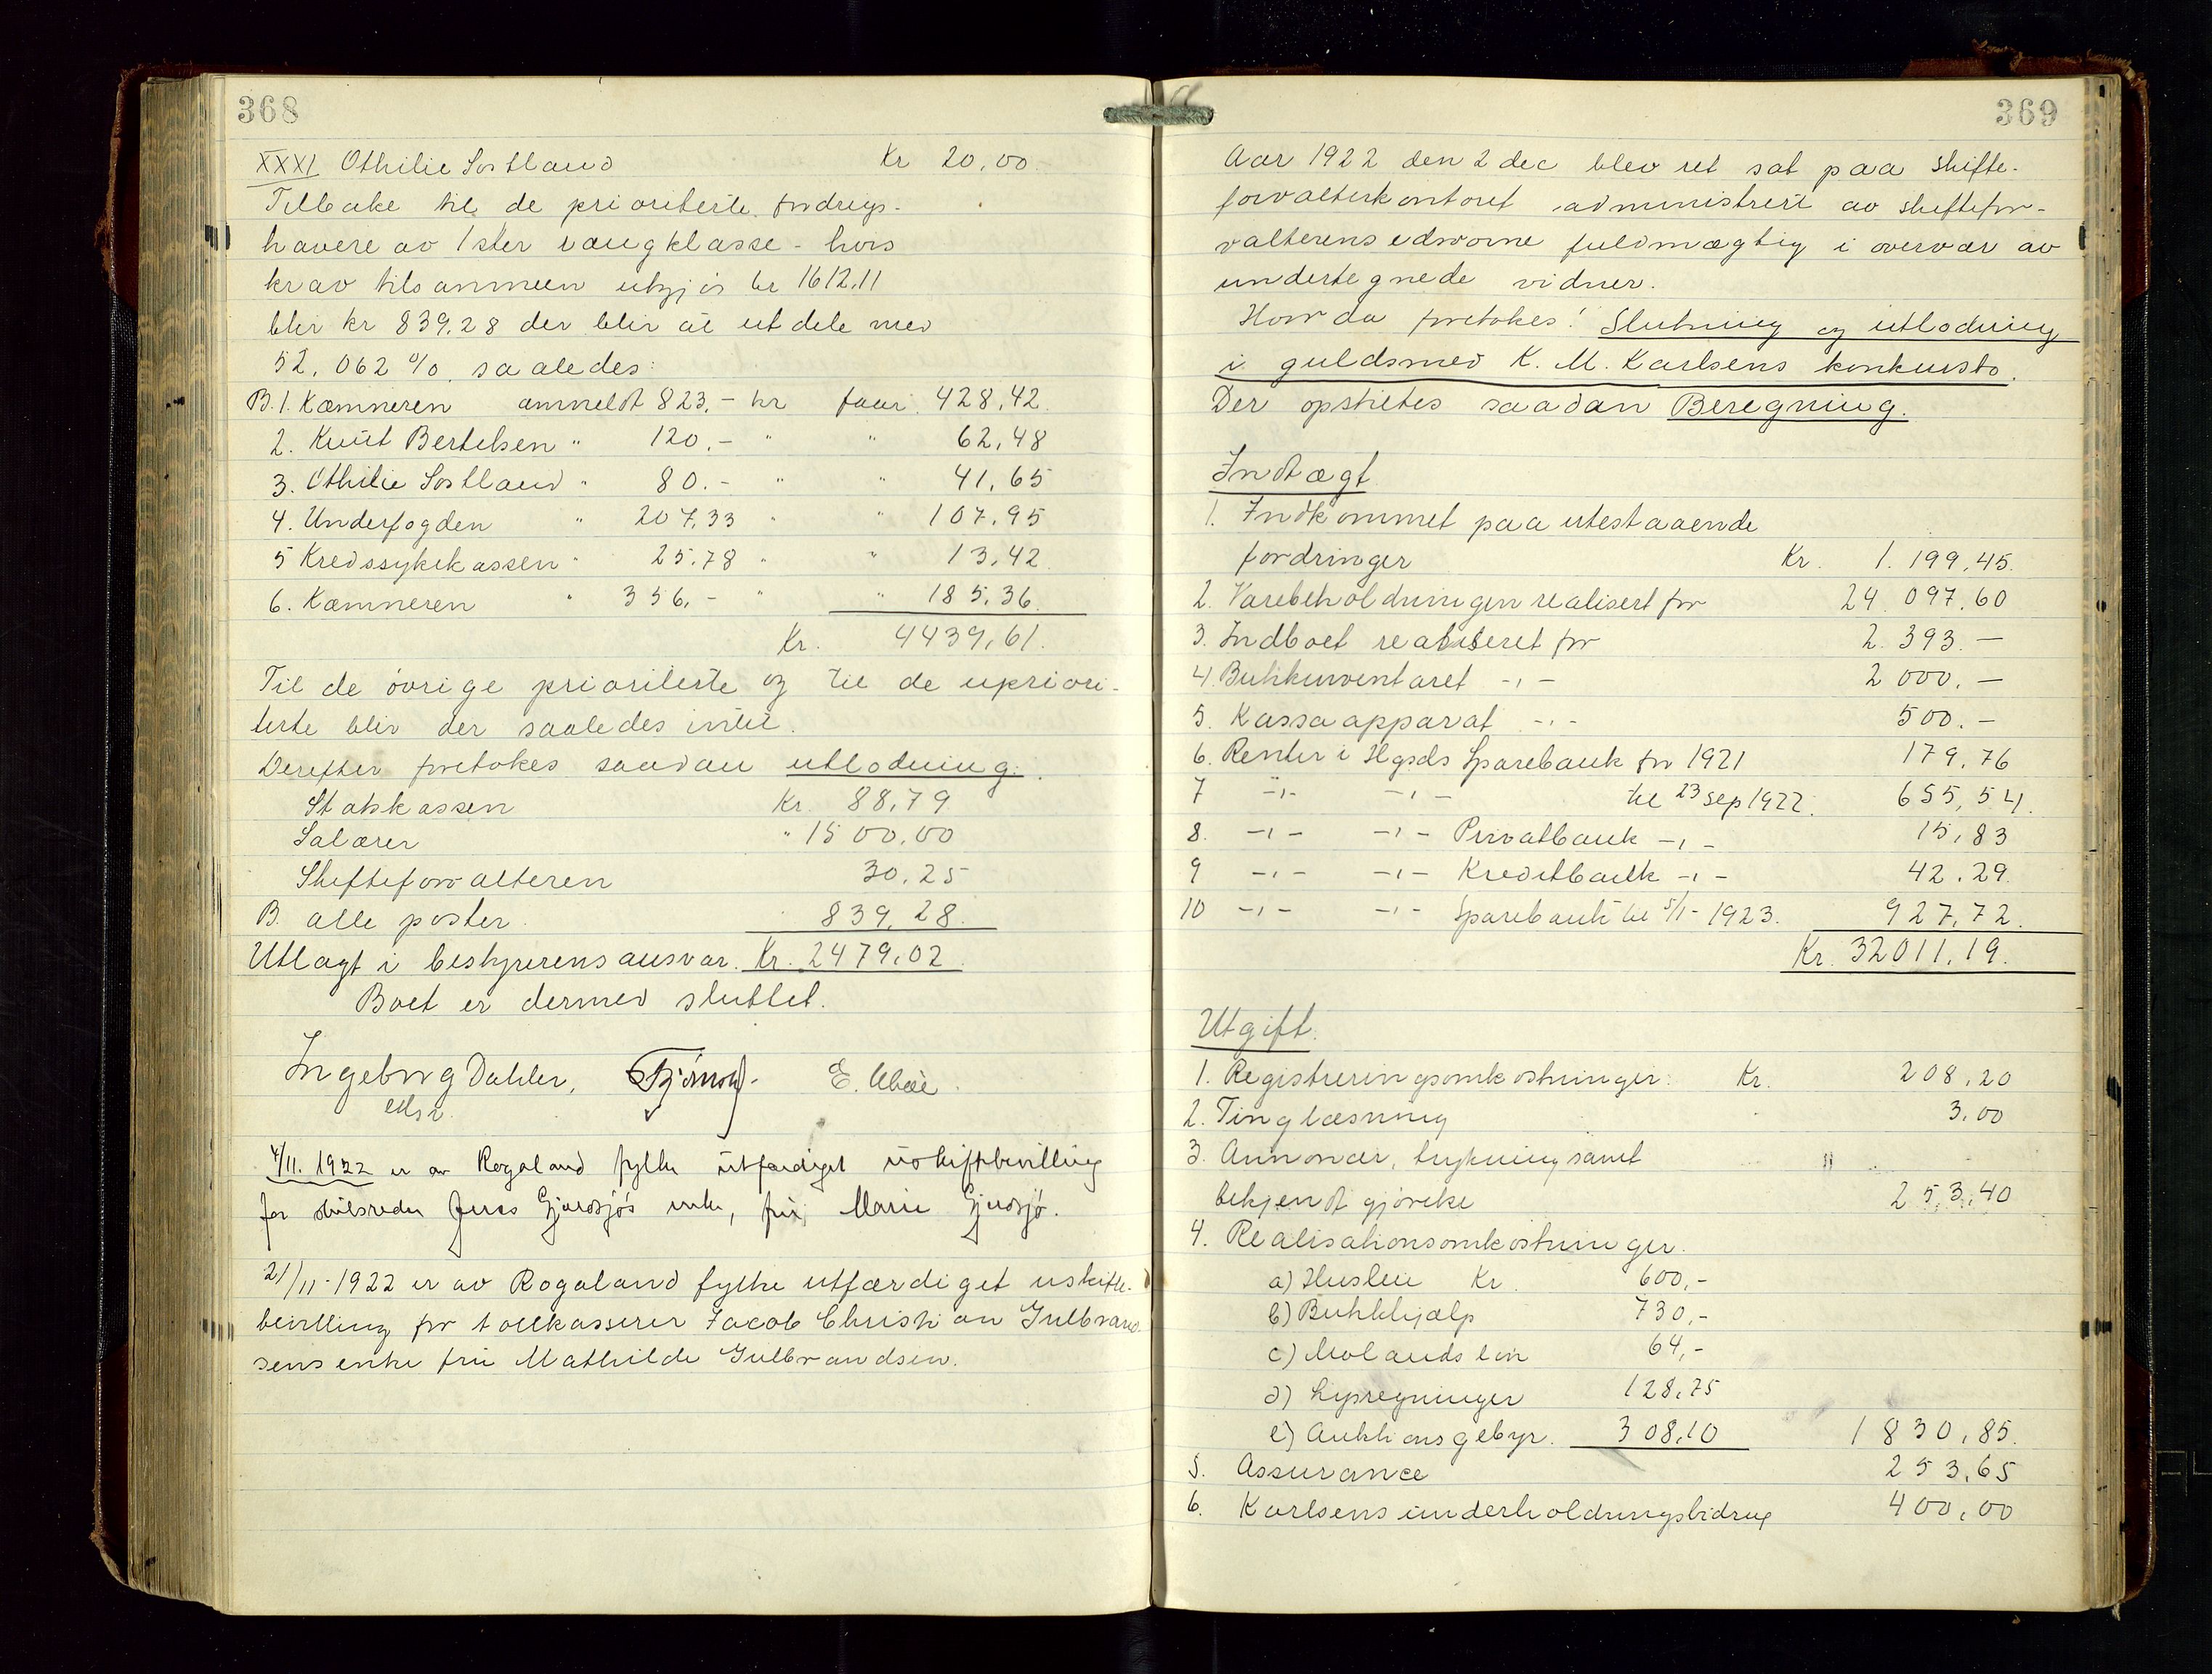 368
XXXI Othilie Sortland Kr 20,00
Tilbake til de prioriterte fordrings-
havere av 1ster rangklasse - hvis
krav tilsammen utgjør kr 1612,11
blir kr 839,28 der blir at utdele med
52,062 % saaledes:
B. 1. Kæmneren anmeldt 823,- kr faar 428,42
2. Knut Bertelsen " 120,- " " 62,48
3. Othilie Sortland " 80.- " " 41,65
4. Underfogden " 207,33 " " 107,95
5 Kredssykekassen " 25,78 " " 13,42
6. Kæmneren " 356,- " " 185,36
Kr. 4439,61
Til de øvrige prioriterte og til de upriori-
terte blir der saaledes intet.
Derefter foretokes saadan utlodning:
Statskassen Kr. 88,79
Salærer " 1500,00
Skifteforvalteren 30,25
B. alle poster 839,28
Utlagt i bestyrerens ansvar. Kr. 2479,02
Boet er dermed sluttet.
Ingeborg Dahler, E. Abae
4/11. 1922 er av Rogaland fylke utfærdiget uskiftebevilling
for skibsreder Jens Gjerdsjø's enke, fru Marie Gjerdsjø.
21/11-1922 er av Rogaland fylke utfærdiget uskifte-
bevilling for toldkasserer Jacob Christian Gulbrand-
sens enke fru Mathilde Gulbrandsen.
369
Aar 1922 den 2 dec blev ret sat paa skifte-
forvalterkontoret administrert av skiftefor-
valterens edsvorne fuldmægtig i overvær av
undertegnede vidner.
Hvor da foretokes: Slutning og utlodning
i guldsmed K. M. Karlsens konkursbo.
Der opsattes saadan Beregning.
Indtægt
1. Indkommet paa utestaaende
fordringer Kr. 1.199,45
2. Varebeholdningen realisert for 24.097,60
3. Indboet realiseret for 2.393.-
4. Butikinventaret -"- 2 000.-
5. Kassaapparat -"- 500.-
6. Renter i Hgsds Sparebank for 1921 179,76
7 -"- -"- til 23 sep 1922. 655,54
8. -"- -"- Privatbank -"- 15,83
9 -"- -"- Kreditbank -"- 42,29
10 -"- -"- Sparebank til 5/1-1923. 927,72
Kr. 32011,19
Utgift.
1. Registreringsomkostninger. Kr. 208,20
2. Tinglæsning 3,00
3. Annoncer, trykning samt "
bekjendtgjørelse 253,40
4. Realisationsomkostninger.
a) Husleie Kr. 600,-
b) Butikhjælp 730,-
c) Molands løn 64,-
d) Lysregninger 128,75
e) Auktionsgebyr. 308,10 1830,85
5. Assurance 253,65
6. Karlsens underholdningsbidrag 400,00